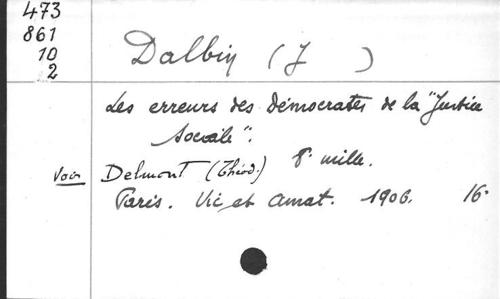 473
861
10
2
Dalbin (J )
Les erreurs des démocrates de la "Justice
sociale".
8e mille.
Voir Delmont (Théod.)
Paris. Vic et Amat. 1906. 16°